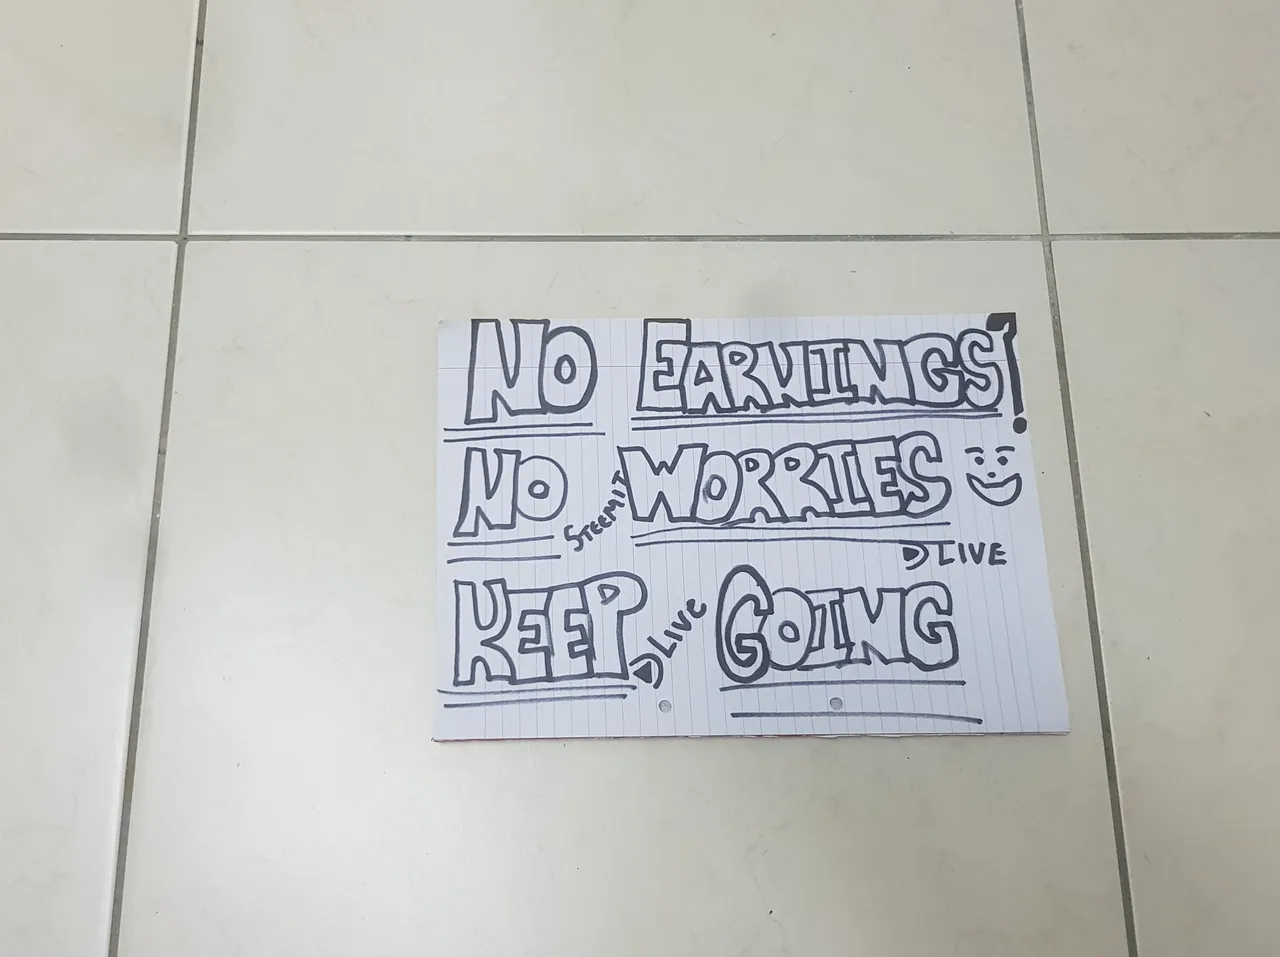 NO EARNINGS!
NO STEEMIT WORRIES
DLIVE
KEEP DLIVE GOING